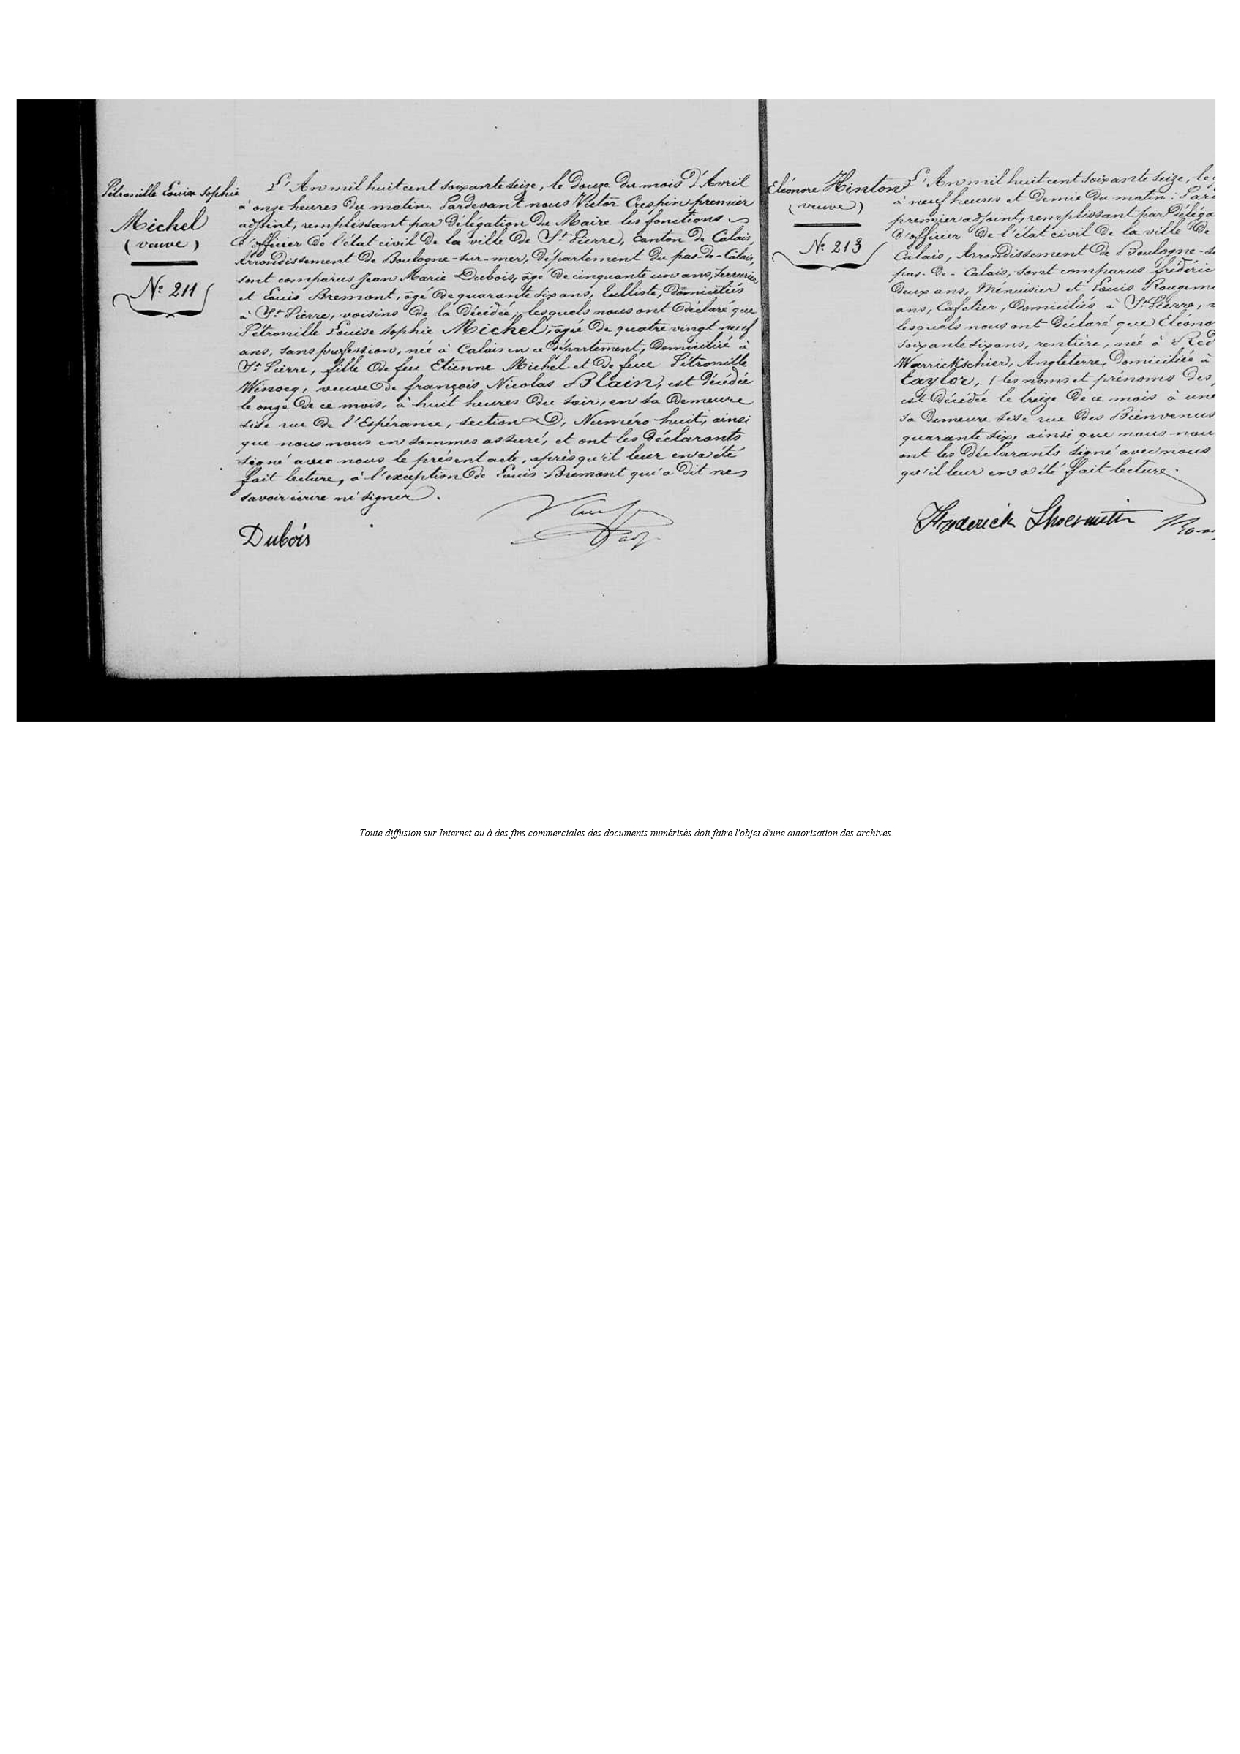 Pétronille Louise Sophie
Michel
(veuve)
Nº 211
L'An mil huit cent soixante seize, le douze du mois d'Avril
à onze heures du matin. Pardevant nous Victor Crespin premier
adjoint, remplissant par délégation du Maire les fonctions
d'officier de l'état civil de la ville de St Pierre, canton de Calais,
Arrondissement de Boulogne-sur-mer, département du pas-de-Calais,
sont comparus Jean Marie Dubois, âgé de cinquante un ans,
et Louis Bremont, âgé de quarante six ans, tulliste, domiciliés
à St Pierre, voisins de la décédée, lesquels nous ont déclaré que
Pétronille Louise Sophie Michel, âgée de quatre vingt neuf
ans, sans profession, née à Calais en ce département, domiciliée à
St Pierre, fille de feu Etienne Michel et de feue Pétronille
veuve de françois Nicolas Blain, est décédée
le onze de ce mois, à huit heures du soir, en sa demeure
sise rue de l'Espérance, section D, Numéro huit, ainsi
que nous nous en sommes assuré, et ont les déclarants
signé avec nous le présent acte, après qu'il leur en a été
fait lecture, à l'exception de Louis Bremont qui a dit ne
savoir écrire ni signer.
Dubois
Eléonore Hinton
(veuve)
Nº 213
L'An mil huit cent soixante seize, le
à neuf heures et demie du matin. Par
premier adjoint, remplissant par déléga
d'officier de l'état civil de la ville de
Calais, Arrondissement de Boulogne-s
pas-de-Calais, sont comparus frédéric
deux ans, Menuisier et Louis
ans, Cafetier, domiciliés à St Pierre,
lesquels nous ont déclaré que Eléono
soixante six ans, rentière, née à
Warrickshier, Angleterre, domiciliée à
taylor, (les noms et prénoms des
est décédée le treize de ce mois à une
sa demeure sise rue des
quarante six, ainsi que nous nous
ont les déclarants signé avec nous
qu'il leur en a été fait lecture.
Frederick Shoesmith
Toute diffusion sur Internet ou à des fins commerciales des documents numérisés doit faire l'objet d'une autorisation des archives